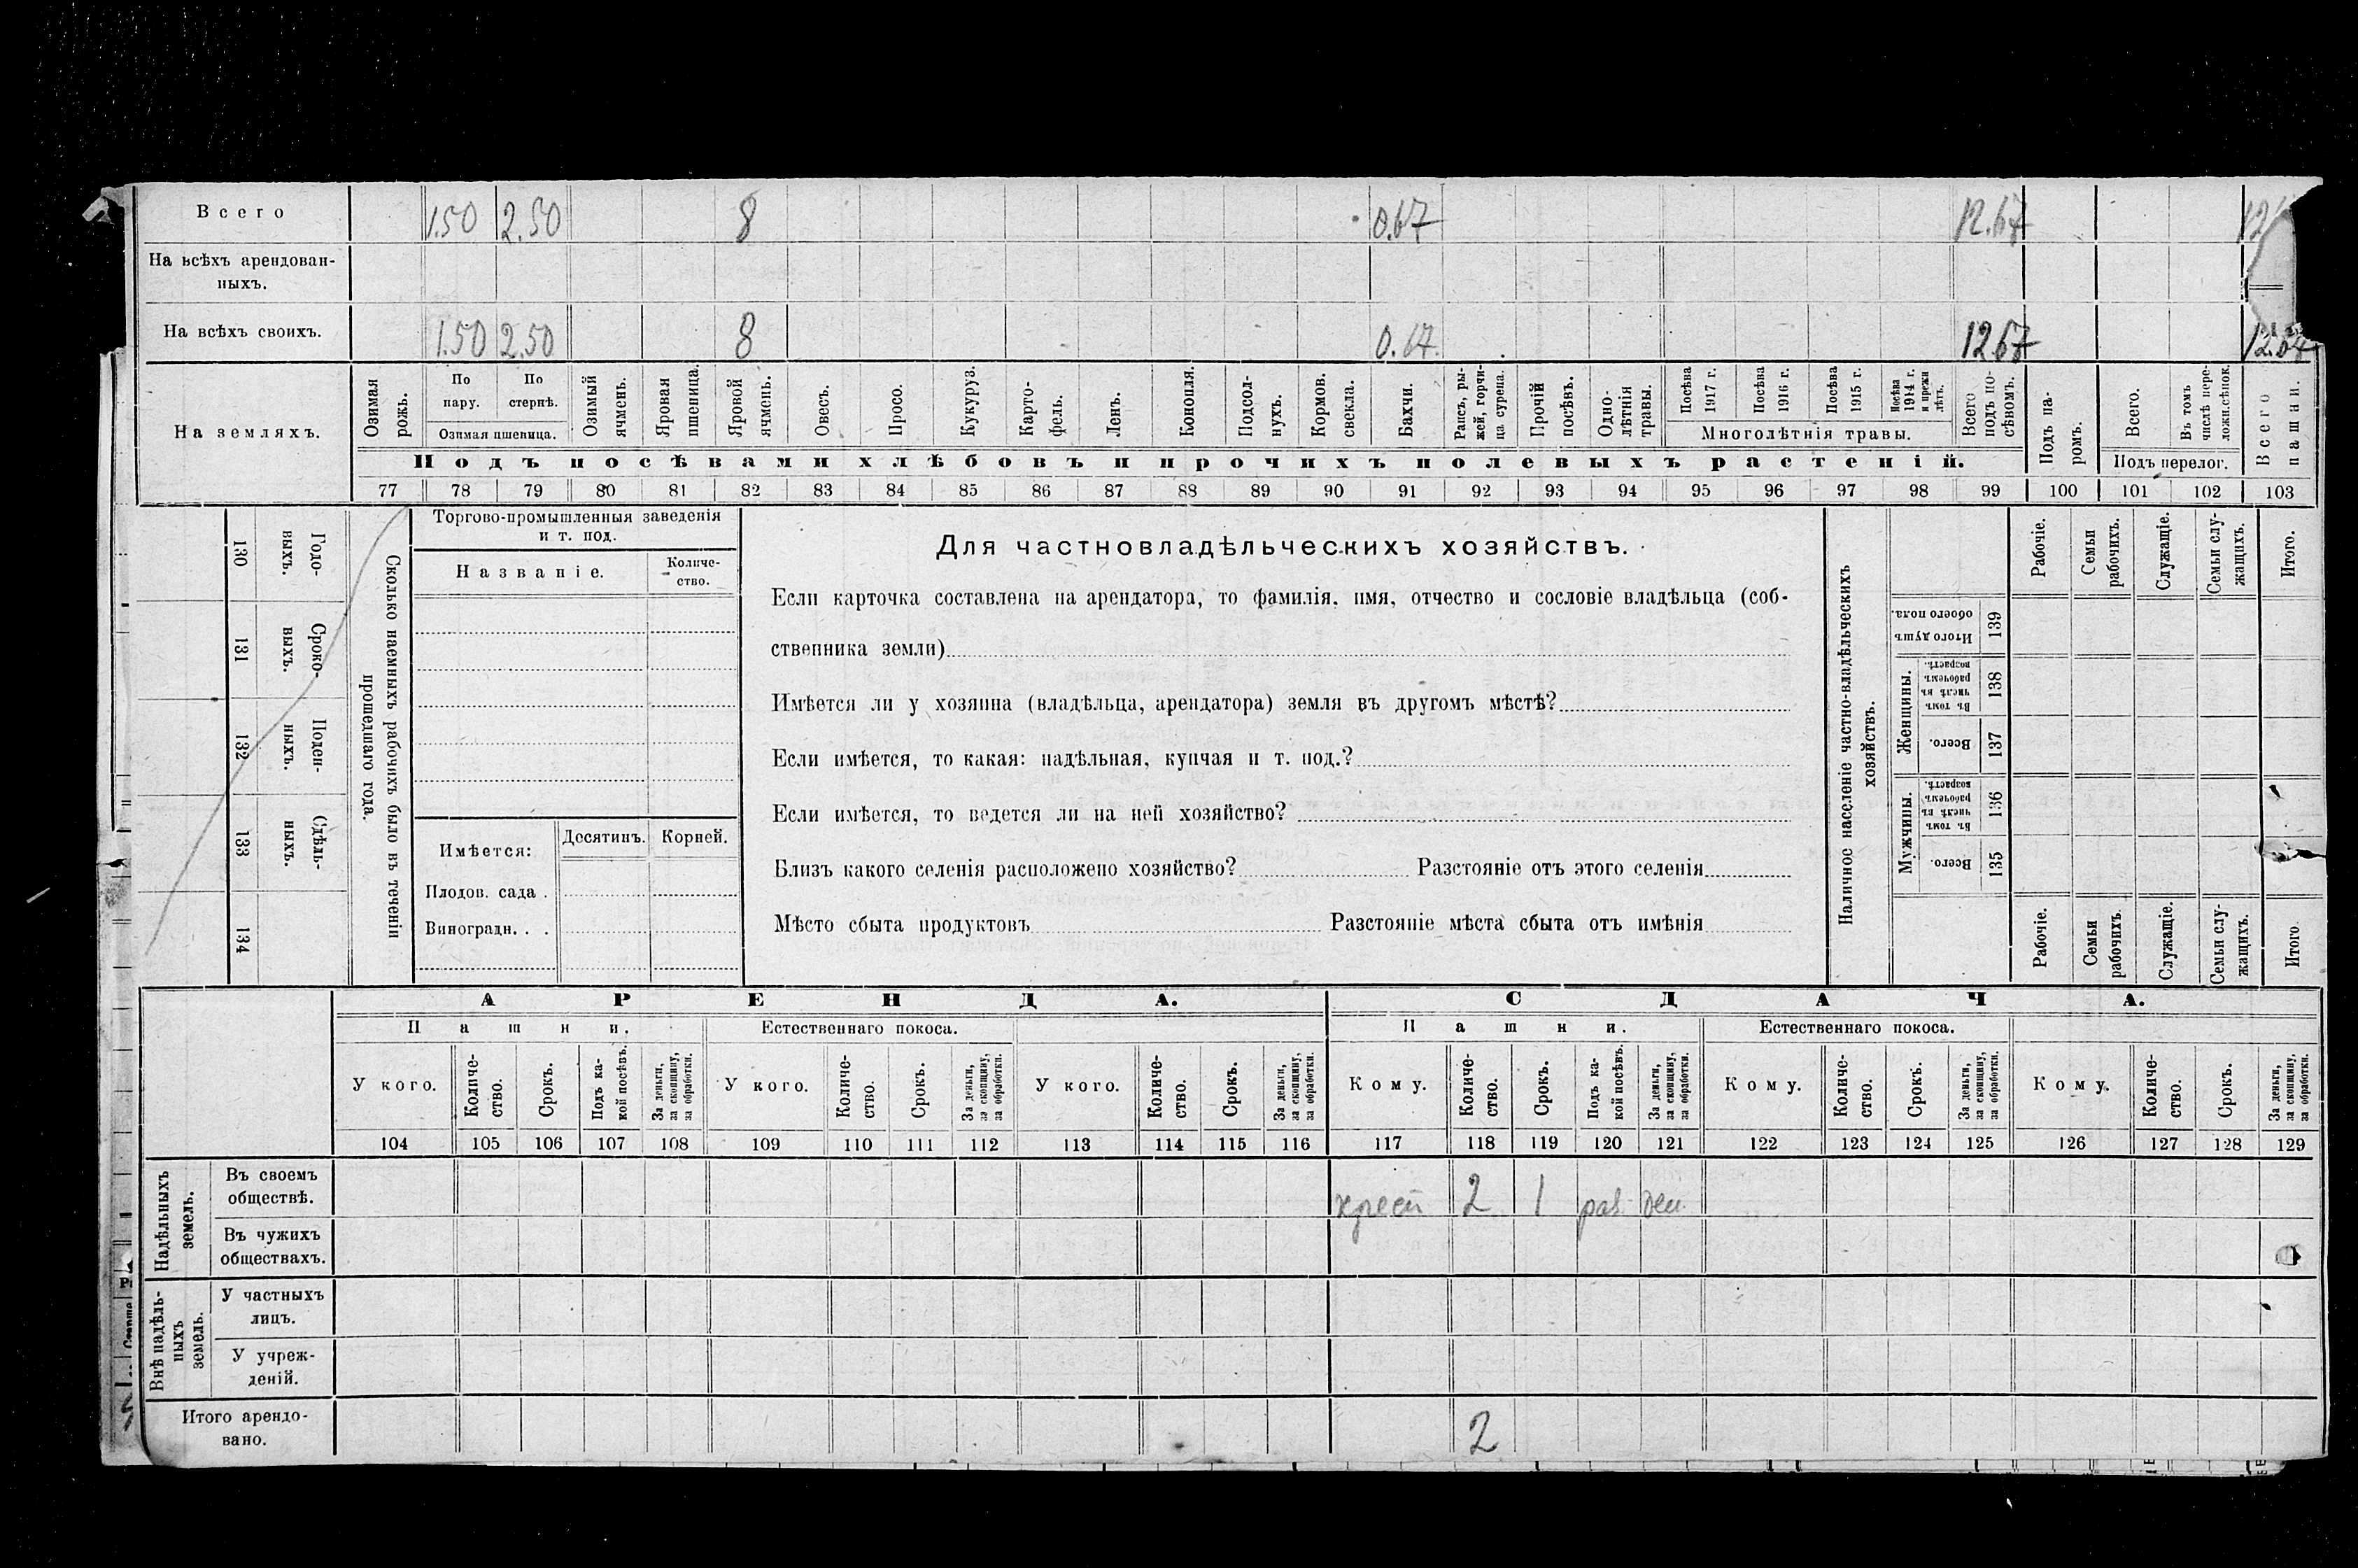 Всего 1.50 2.50 8 0.67 12.67 12
На всѣхъ арендован-
ныхъ.
На всѣхъ своихъ. 1.50 2.50 8 0.67 12.67 12.67
На земляхъ.
Озимая рожь.
По пару.
По стернѣ.
Озимая пшеница.
Озимый ячмень.
Яровая пшеница.
Яровой ячмень.
Овесъ.
Просо.
Кукуруз.
Карто-
фель.
Ленъ.
Конопля.
Подсол-
нухъ.
Кормов. свекла.
Бахчи.
Рапсъ, ры-
жей, горчи-
ца сурепа.
Прочій посѣвъ.
Одно-
лѣтнія
травы.
Посѣва 1917 г.
Посѣва 1916 г.
Посѣва 1915 г.
Посѣва 1914 г. и прежн лѣтъ.
Многолѣтнія травы.
Всего подъ по-
сѣвомъ.
Подъ па-
ромъ.
Всего.
Въ томъ числѣ пере-
ложн. сѣнок.
Подъ перелог.
Всего пашни.
Подъ посѣвами хлѣбовъ и прочихъ полевыхъ растеній.
77 78 79 80 81 82 83 84 85 86 87 88 89 90 91 92 93 94 95 96 97 98 99 100 101 102 103
130 Годо-
выхъ.
131 Сроко-
выхъ.
132 Поден-
ныхъ.
133 Сдѣль-
ныхъ.
134
Сколько наемныхъ рабочихъ было въ теченіи
прошедшаго года.
Торгово-промышленныя заведенія
и т. под.
Названіе.
Количе-
ство.
Имѣется:
Десятинъ. Корней.
Плодов. сада .
Виноградн. . .
Для частновладѣльческихъ хозяйствъ.
Если карточка составлена на арендатора, то фамилія, имя, отчество и сословіе владѣльца (соб-
ственника земли)
Имѣется ли у хозяина (владѣльца, арендатора) земля въ другомъ мѣстѣ?
Если имѣется, то какая: надѣльная, купчая и т. под.?
Если имѣется, то ведется ли на ней хозяйство?
Близъ какого селенія расположено хозяйство? Разстояніе отъ этого селенія
Мѣсто сбыта продуктовъ Разстояніе мѣста сбыта отъ имѣнія
Наличное населеніе частно-владѣльческихъ
хозяйствъ.
Рабочіе.
Семьи рабочихъ.
Служащіе.
Семьи слу-
жащихъ.
Итого.
Итого душъ обоего пола. 139
Женщины.
Въ томъ числѣ въ рабочемъ возрастѣ. 138
Всего. 137
Мужчины.
Въ томъ числѣ въ рабочемъ возрастѣ. 136
Всего. 135
Рабочіе.
Семьи рабочихъ.
Служащіе.
Семьи слу-
жащихъ.
Итого
АРЕНДА. СДАЧА.
Пашни. Естественнаго покоса. Пашни. Естественнаго покоса.
У кого.
Количе-
ство.
Срокъ.
Подъ ка-
кой посѣвъ.
За деньги, за скопщину, за обработки.
У кого.
Количе-
ство.
Срокъ.
За деньги, за скопщину, за обработки.
У кого.
Количе-
ство.
Срокъ.
За деньги, за скопщину, за обработки.
Кому.
Количе-
ство.
Срокъ.
Подъ ка-
кой посѣвъ.
За деньги, за скопщину, за обработки.
Кому.
Количе-
ство.
Срокъ.
За деньги, за скопщину, за обработки.
Кому.
Количе-
ство.
Срокъ.
За деньги, за скопщину, за обработки.
104 105 106 107 108 109 110 111 112 113 114 115 116 117 118 119 120 121 122 123 124 125 126 127 128 129
Надѣльныхъ
земель.
Въ своемъ
обществѣ. крест 2 1 ден
Въ чужихъ
обществахъ.
Внѣ надѣль-
ныхъ
земель.
У частныхъ
лицъ.
У учреж-
деній.
Итого арендо-
вано. 2